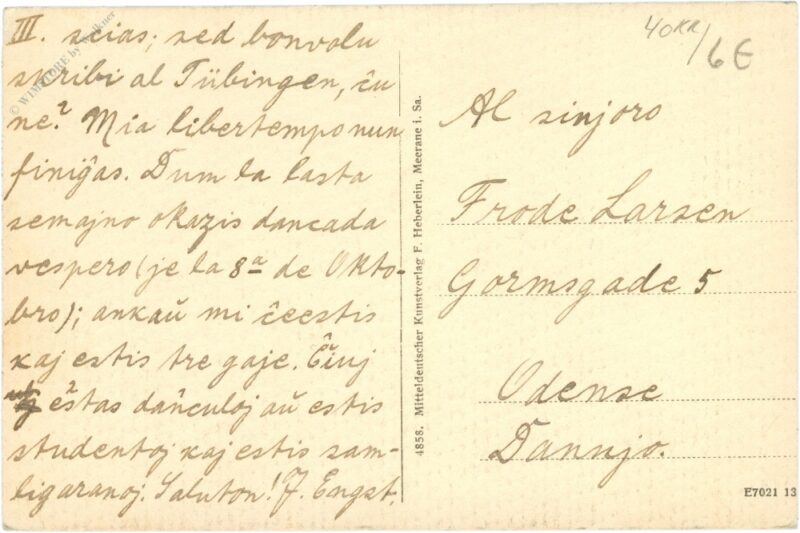 III. scias; sed bonvolu
skribi al Tübingen, ĉu
ne? Mia libertempo nun
finiĝas. Dum la lasta
semajno okazis dancada
vespero (je la 8a de Okto-
bro); ankaŭ mi ĉeestis
kaj estis tre gaje. Ĉiuj
estas danĉuloj aŭ estis
studentoj kaj estis sam-
ligaranoj. Saluton! J. Engst.
© WIMSTORE by
4858. Mitteldeutscher Kunstverlag F. Heberlein, Meerane i. Sa.
40KR/6€
Al sinjoro
Frode Larsen
Gormsgade 5
Odense
Dannujo.
E7021 13